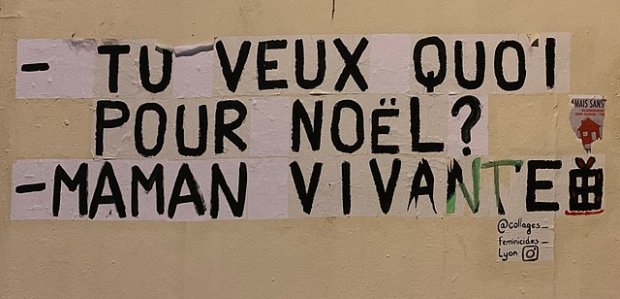 - TU VEUX QUOI
POUR NOËL?
- MAMAN VIVANTE
"MAIS SANS
@collages_
feminicides_
Lyon